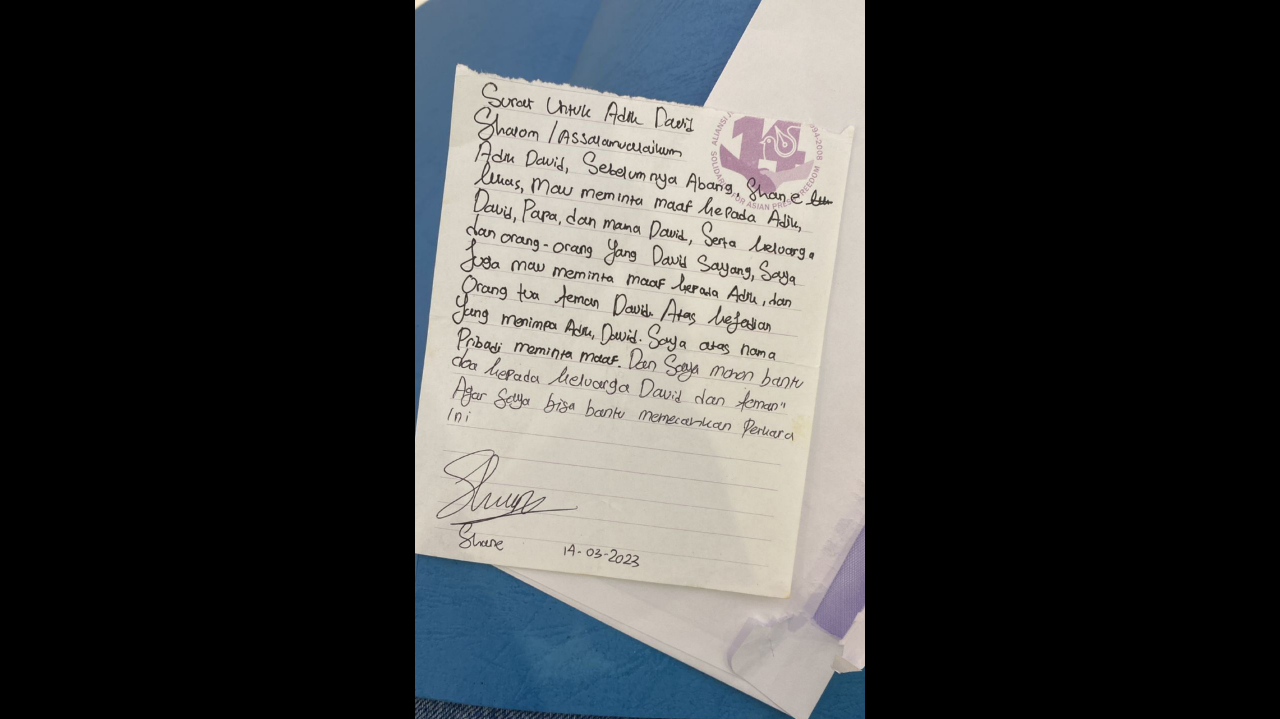 Surat Untuk Adik David
Shalom / Assalamualaikum
Adik David, Sebelumnya Abang, Shane
lukas, Mau meminta maaf kepada Adik,
David, Papa, dan mama David, Serta keluarga
dan orang-orang Yang David Sayang, Saya
Juga mau meminta maaf kepada Adik, dan
Orang tua teman David. Atas kejadian
Yang menimpa Adik, David. Saya atas nama
Pribadi meminta maaf. Dan Saya mohon bantu
doa kepada keluarga David dan teman"
Agar Saya bisa bantu memecahkan Perkara
Ini
Shane
14-03-2023
14
ALIANSI
1994-2008
FOR ASIAN PRESS FREEDOM